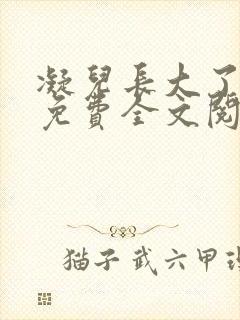 凝兒長大了
免費全文閱
猫子 武六甲